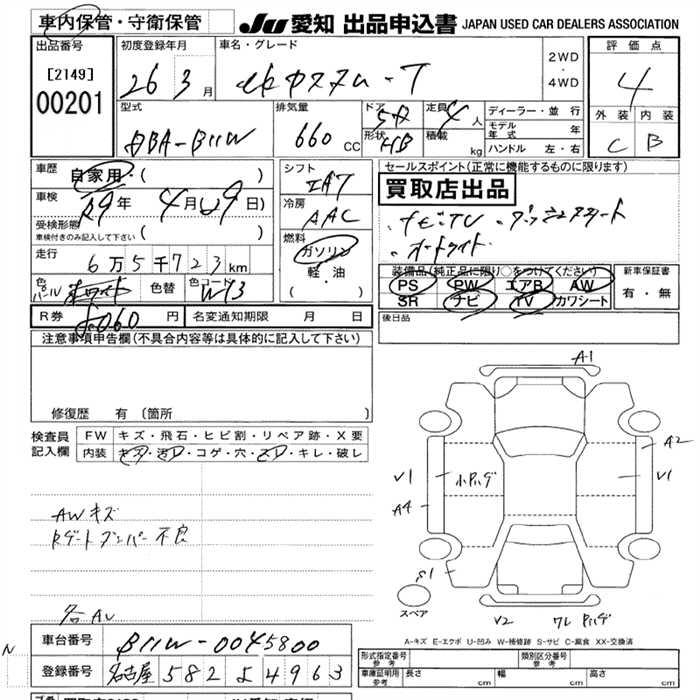 車内保管・守衛保管
JU 愛知 出品申込書 JAPAN USED CAR DEALERS ASSOCIATION
出品番号
[2149]
00201
初度登録年月
26 3月
車名・グレード
2WD
・
4WD
評価点
4
外装 内装
C B
型式
DBA-B11W
排気量
660 CC
ドア
5D
形状
HB
定員
4人
積載
kg
ディーラー・並行
モデル年式 年
ハンドル 左・右
車歴
自家用 ( )
車検
R9年 4月(29日)
受検形態
車検付きのみ記入して下さい ( )
走行
6万5千723km
色
色替
色コード
W13
シフト
IAT
冷房
AAC
燃料
ガソリン
軽・油
( )
セールスポイント(正常に機能するものに限ります)
買取店出品
・ナビ・TV
・オートライト
装備品(純正品に限り○をつけてください)
PS PW エアB AW
SR ナビ TV カワシート
新車保証書
有・無
後日品
R券 8060円 名変通知期限 月 日
注意事項申告欄(不具合内容等は具体的に記入して下さい)
修復歴 有 (箇所
検査員
記入欄
FW キズ・飛石・ヒビ割・リペア跡・X要
内装 キズ・汚レ・コゲ・穴・スレ・キレ・破レ
AWキズ
Rゲート バンパー 不良
各AU
A-1
A2
V1
V1
A4
S1
V2
スペア
A-キズ E-エクボ U-凹み W-補修跡 S-サビ C-腐食 XX-交換済
車台番号 B11W-0045800
N
登録番号 名古屋 582 よ 4963
形式指定番号
参考
類別区分番号
参考
車庫証明用
参考
長さ cm 幅 cm 高さ cm